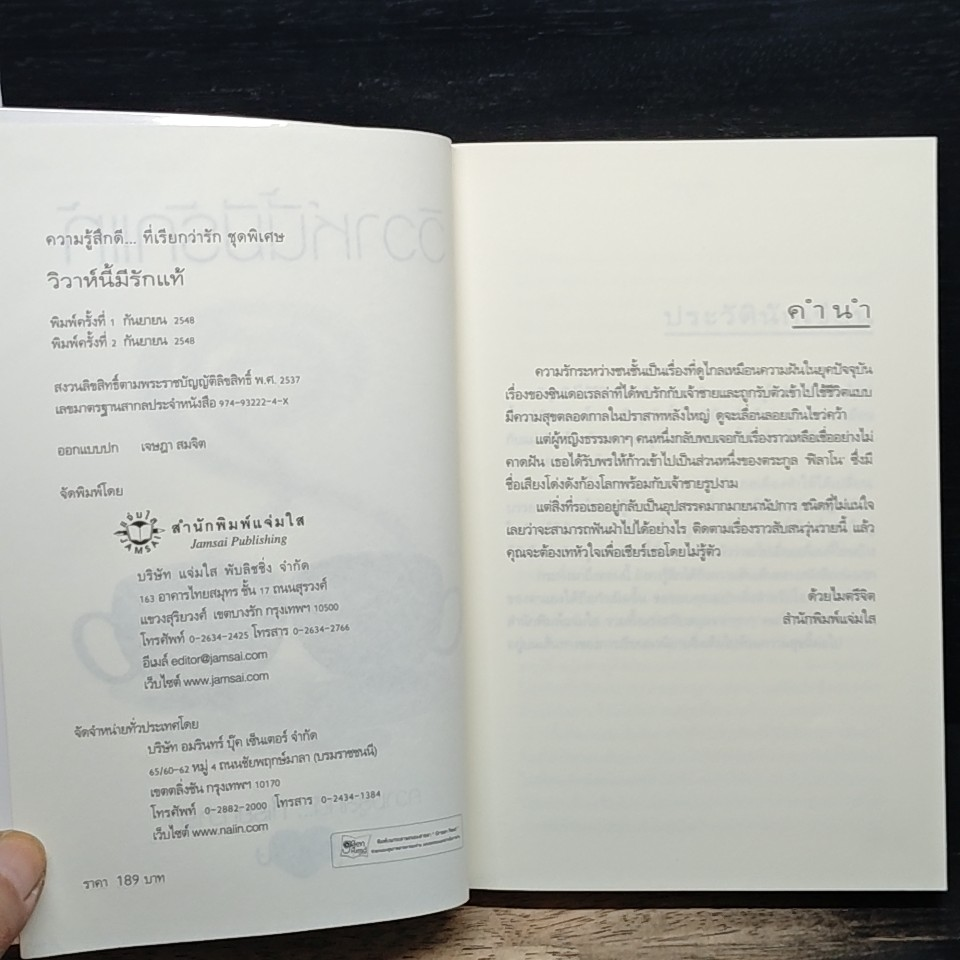 ความรู้สึกดี... ที่เรียกว่ารัก ชุดพิเศษ
วิวาห์นี้มีรักแท้
พิมพ์ครั้งที่ 1 กันยายน 2548
พิมพ์ครั้งที่ 2 กันยายน 2548
สงวนลิขสิทธิ์ตามพระราชบัญญัติลิขสิทธิ์ พ.ศ. 2537
เลขมาตรฐานสากลประจำหนังสือ 974-93222-4-X
ออกแบบปก เจษฎา สมจิต
จัดพิมพ์โดย
สำนักพิมพ์แจ่มใส
Jamsai Publishing
บริษัท แจ่มใส พับลิชชิ่ง จำกัด
163 อาคารไทยสมุทร ชั้น 17 ถนนสุรวงศ์
แขวงสุริยวงศ์ เขตบางรัก กรุงเทพฯ 10500
โทรศัพท์ 0-2634-2425 โทรสาร 0-2634-2766
อีเมล์ editor@jamsai.com
เว็บไซต์ www.jamsai.com
จัดจำหน่ายทั่วประเทศโดย
บริษัท อมรินทร์ บุ๊ค เซ็นเตอร์ จำกัด
65/60-62 หมู่ 4 ถนนชัยพฤกษ์มาลา (บรมราชชนนี)
เขตตลิ่งชัน กรุงเทพฯ 10170
โทรศัพท์ 0-2882-2000 โทรสาร 0-2434-1384
เว็บไซต์ www.naiin.com
ราคา 189 บาท
คำนำ
ความรักระหว่างชนชั้นเป็นเรื่องที่ดูไกลเหมือนความฝันในยุคปัจจุบัน
เรื่องของซินเดอเรลล่าที่ได้พบรักกับเจ้าชายและถูกรับตัวเข้าไปใช้ชีวิตแบบ
มีความสุขตลอดกาลในปราสาทหลังใหญ่ ดูจะเลื่อนลอยเกินไขว่คว้า
แต่ผู้หญิงธรรมดาๆ คนหนึ่งกลับพบเจอกับเรื่องราวเหลือเชื่ออย่างไม่
คาดฝัน เธอได้รับพรให้ก้าวเข้าไปเป็นส่วนหนึ่งของตระกูล 'ฟิลาโน' ซึ่งมี
ชื่อเสียงโด่งดังก้องโลกพร้อมกับเจ้าชายรูปงาม
แต่สิ่งที่รอเธออยู่กลับเป็นอุปสรรคมากมายนานัปการ ชนิดที่ไม่แน่ใจ
เลยว่าจะสามารถฟันฝ่าไปได้อย่างไร ติดตามเรื่องราวสับสนวุ่นวายนี้ แล้ว
คุณจะต้องเทหัวใจเพื่อเชียร์เธอโดยไม่รู้ตัว
ด้วยไมตรีจิต
สำนักพิมพ์แจ่มใส